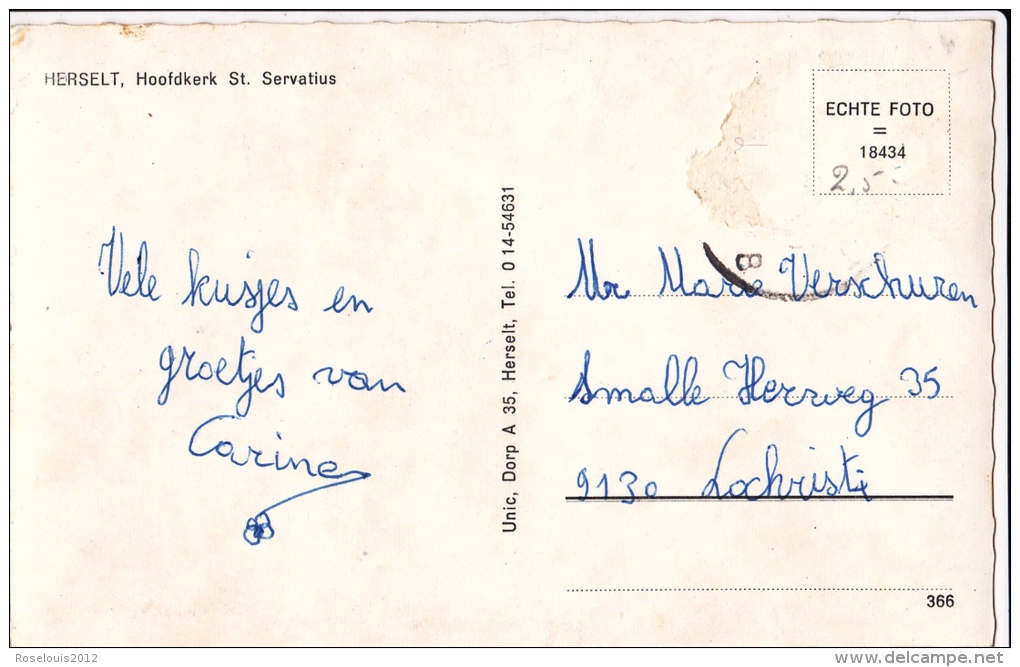 HERSELT, Hoofdkerk St. Servatius
ECHTE FOTO
=
18434
2,5-
Vele kusjes en
groetjes van
Carine
Unic, Dorp A 35, Herselt, Tel. 014-54631
B
Mr Marie Verschuren
Smalle Heerweg 35
9130 Lochristi
366
Roselouis2012
delcampe.net